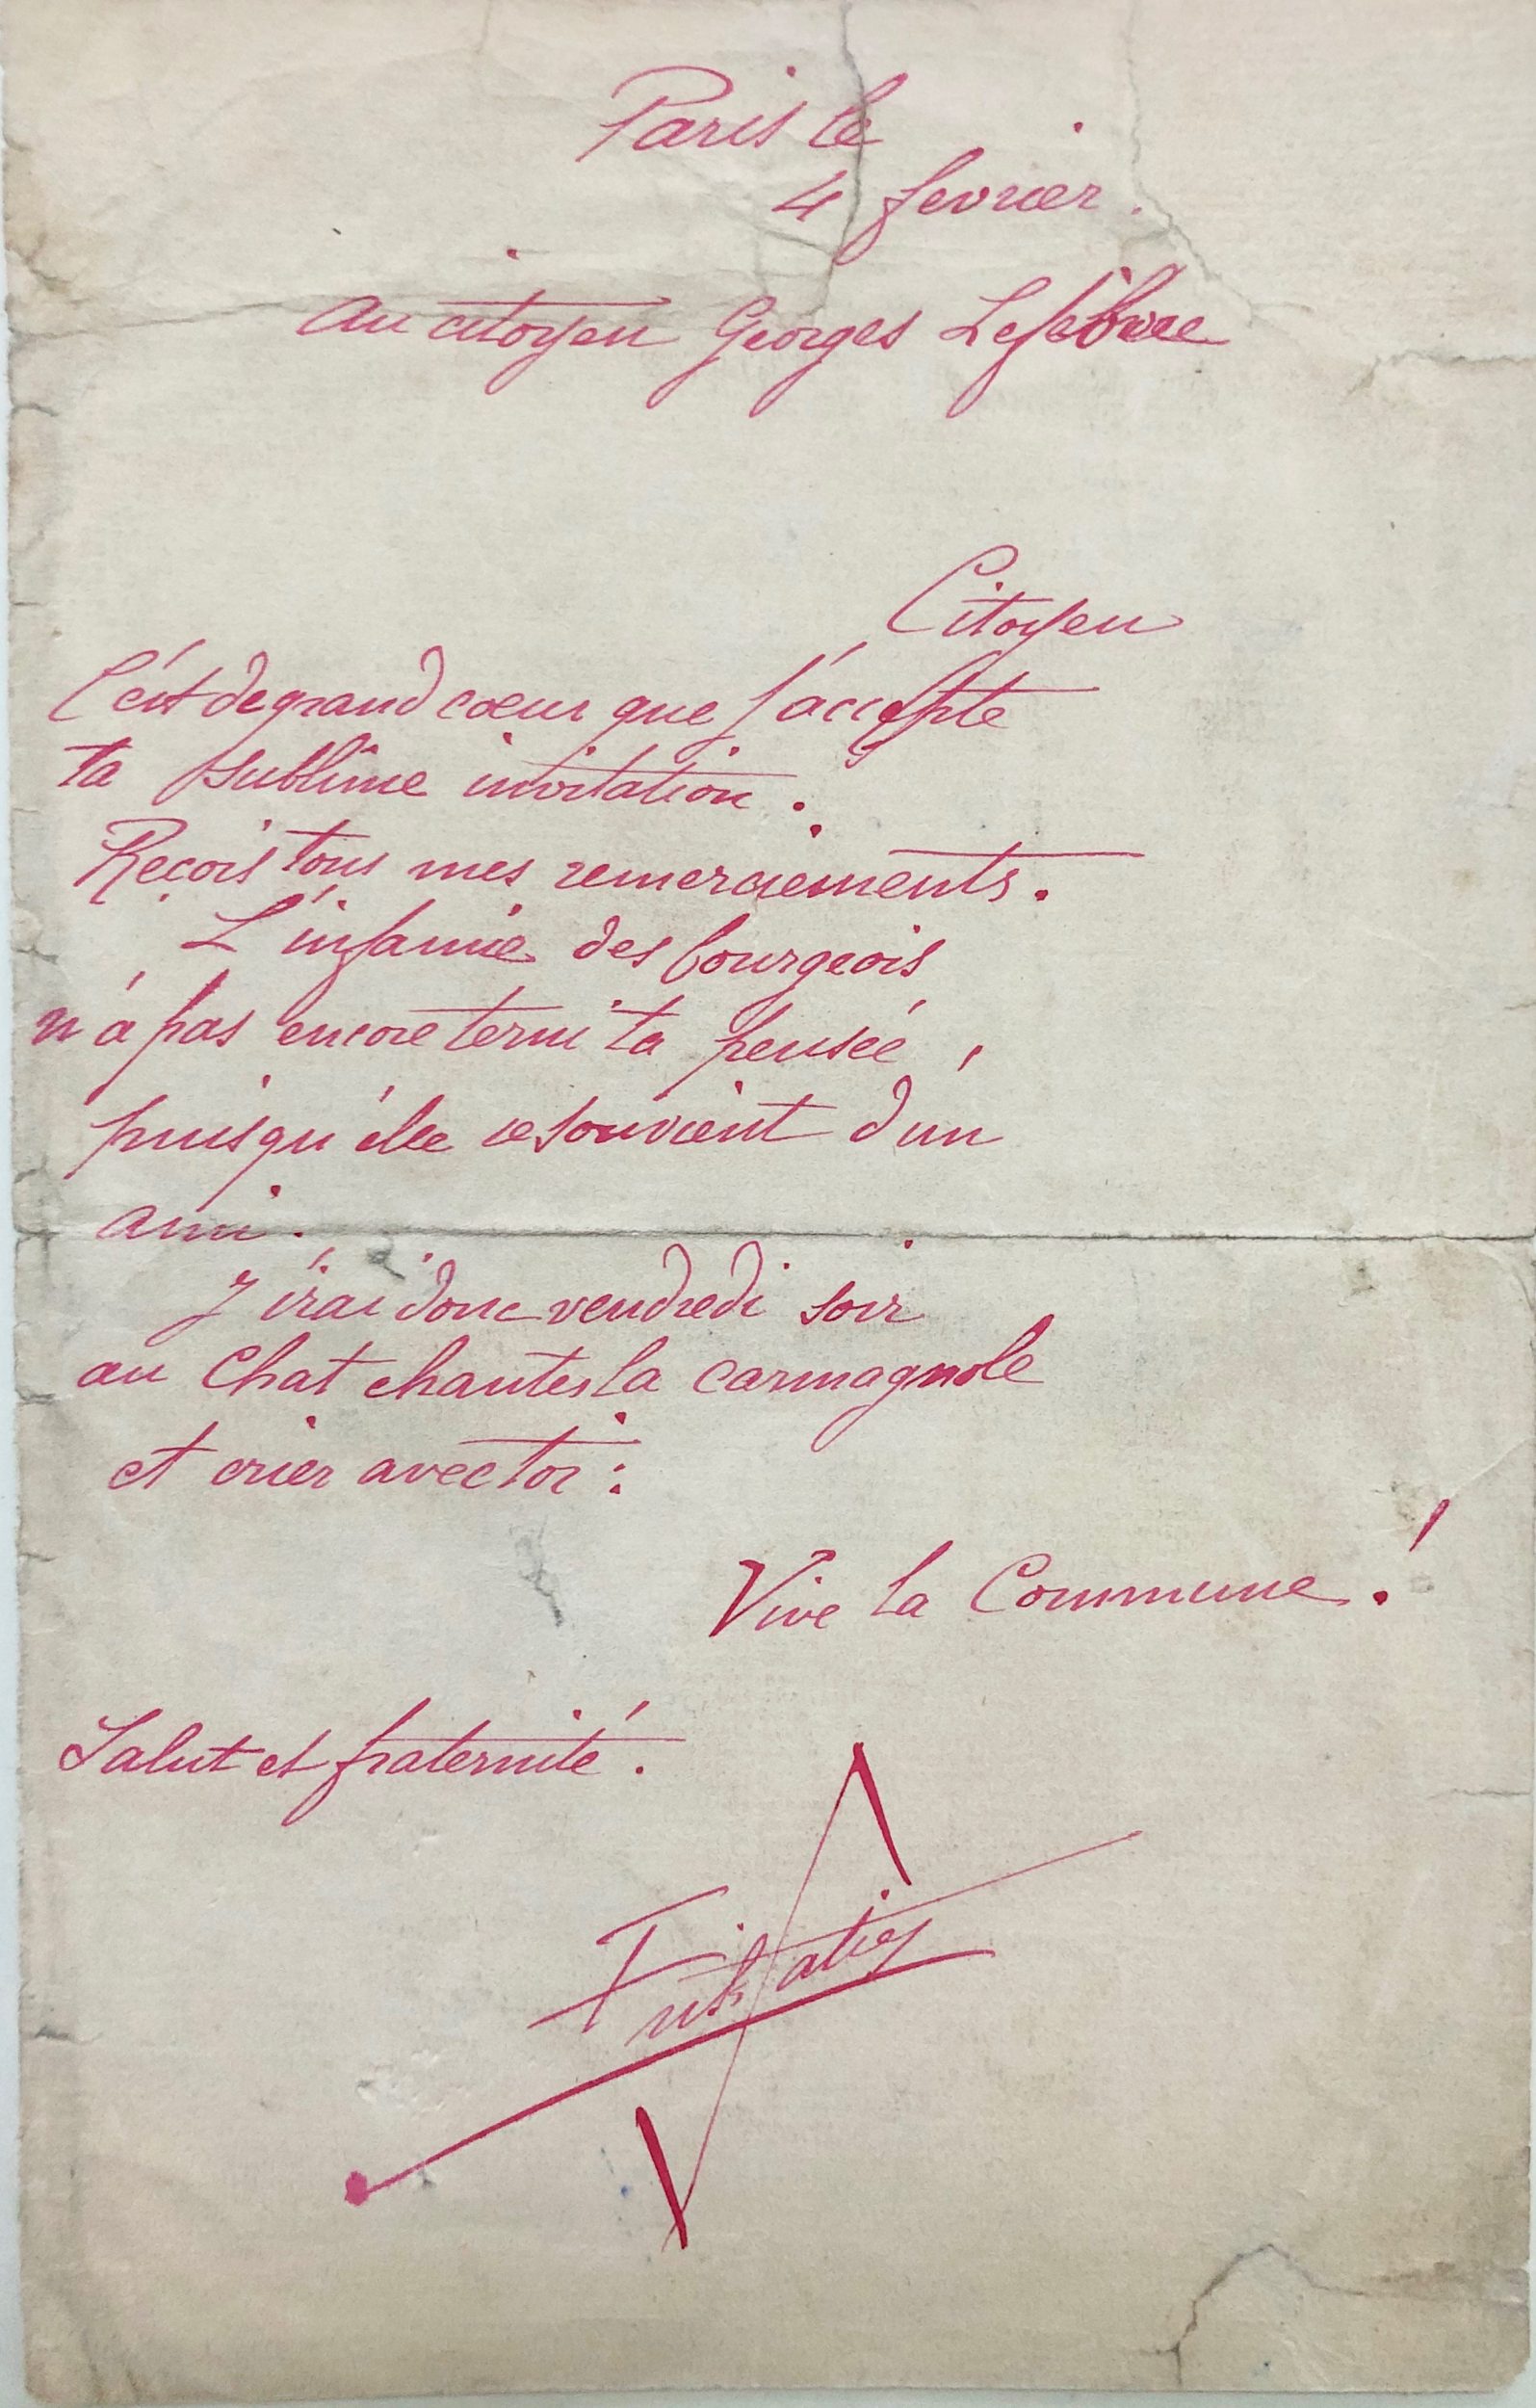 Paris le
4 fevrier.
Au citoyen Georges Lefèbvre
Citoyen
C'est de grand cœur que j'accepte
ta sublime invitation.
Reçois tous mes remerciements.
L'infamie des bourgeois
n'a pas encore terni ta pensée,
puisqu'elle se souvient d'un
ami.
J'irai donc vendredi soir
au Chat chanter la carmagnole
et crier avec toi :
Vive la Commune !
Salut et fraternité.